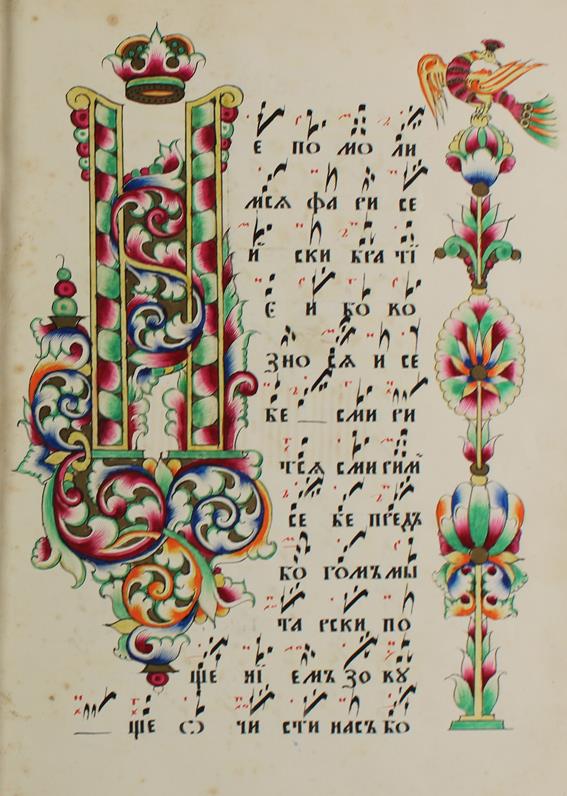 Н
Е ПО МО ЛИ
МСѦ ФА РИ СЕ
Й СКИ БРА ТЇ
Е И БО КО
ЗНО СѦ И СЕ
БЕ СМИ РИ
ТСѦ СМИ РИМЪ
СЕ БЕ ПРЕДЪ
БО ГОМЪ МЫ
ТА РСКИ ПО
ЩЕ НЇ ЕМЪ ЗО ВꙊ
ЩЕ Ѡ ЧИ СТИ НАСЪ БО